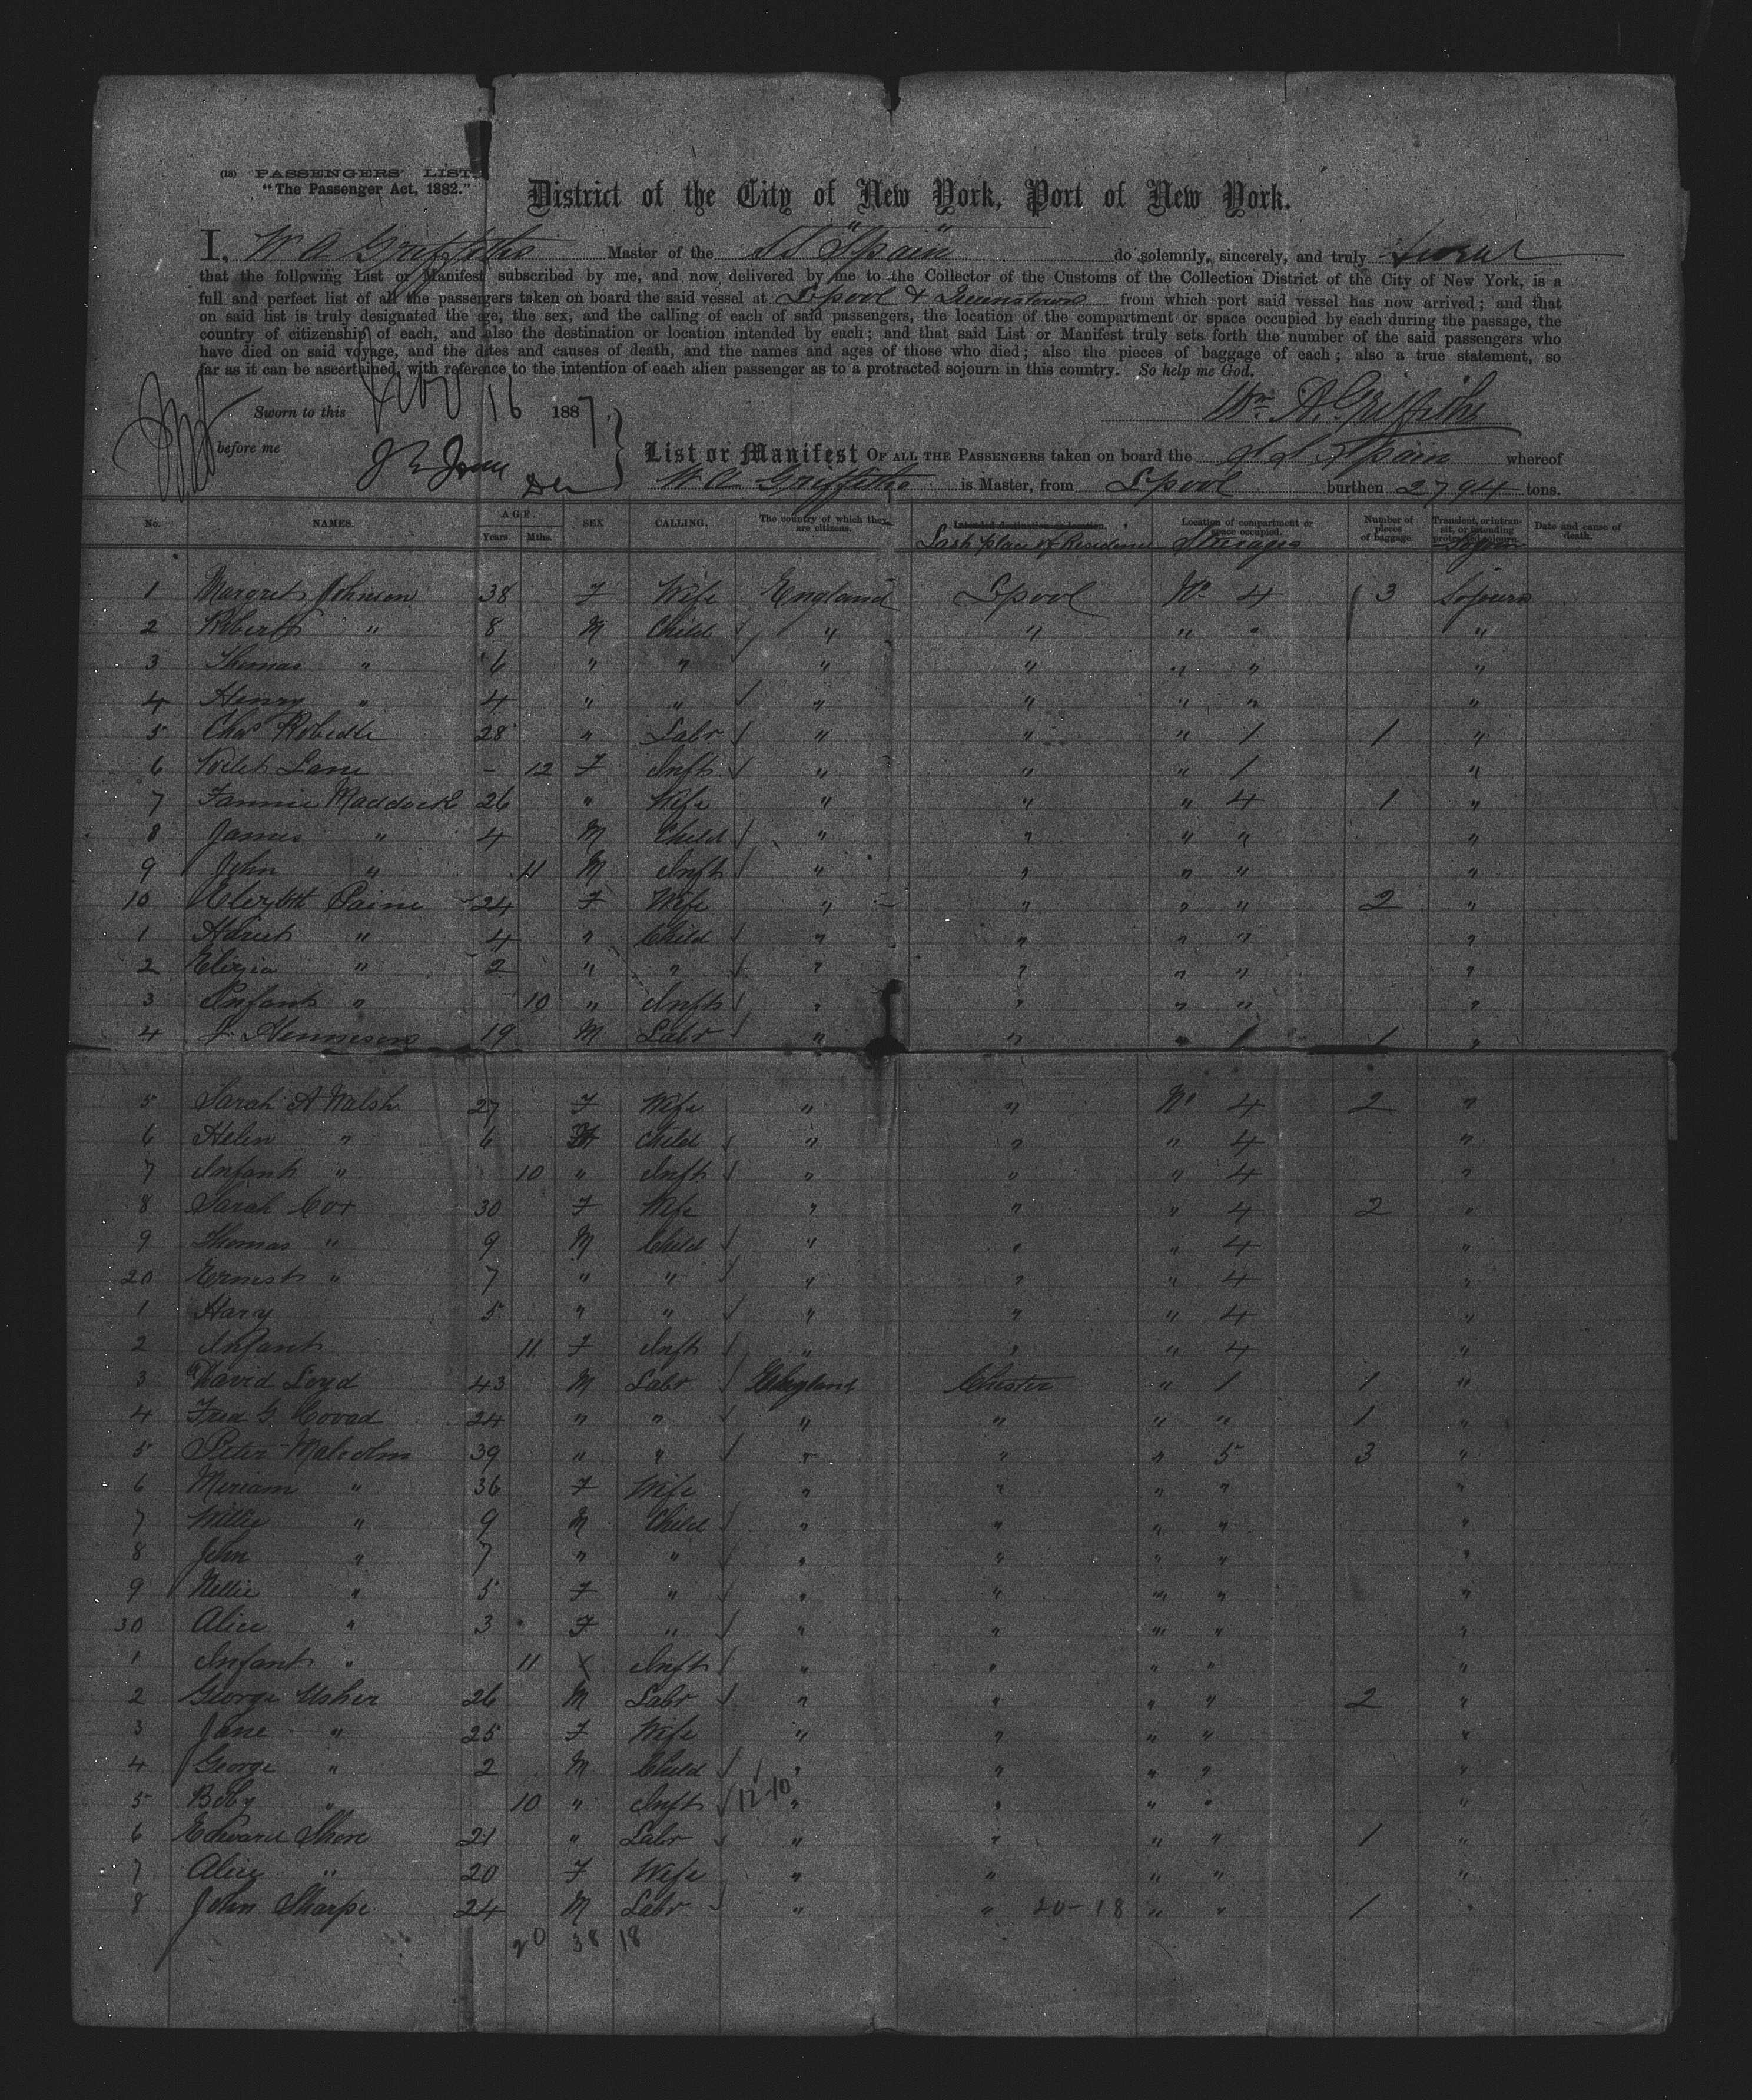 (18) PASSENGERS' LIST.
"The Passenger Act, 1882."
District of the City of New York, Port of New York.
I, W A Griffiths Master of the SS "Spain" do solemnly, sincerely, and truly Swear
that the following List or Manifest subscribed by me, and now delivered by me to the Collector of the Customs of the Collection District of the City of New York, is a
full and perfect list of all the passengers taken on board the said vessel at Lpool & Queenstown from which port said vessel has now arrived; and that
on said list is truly designated the age, the sex, and the calling of each of said passengers, the location of the compartment or space occupied by each during the passage, the
country of citizenship of each, and also the destination or location intended by each; and that said List or Manifest truly sets forth the number of the said passengers who
have died on said voyage, and the dates and causes of death, and the names and ages of those who died; also the pieces of baggage of each; also a true statement, so
far as it can be ascertained, with reference to the intention of each alien passenger as to a protracted sojourn in this country. So help me God.
Sworn to this Feby 16 1887
Wm A. Griffiths
before me
List or Manifest OF ALL THE PASSENGERS taken on board the S S Spain whereof
W A Griffiths is Master, from Lpool burthen 2794 tons.
No. NAMES. AGE. Years. Mths. SEX CALLING. The country of which they are citizens. Intended destination or location. Last place of Residence Location of compartment or space occupied. Steerages Number of pieces of baggage. Transient, or in transit, or intending protracted sojourn. Date and cause of death.
1 Margret Johnson 38 F Wife England Lpool No 4 3 Sojourn
2 Robert " 8 M Child " " " " "
3 Thomas " 6 " " " " " " "
4 Henry " 4 " " " " " " "
5 Chas 28 " Labr " " " 1 1 "
6 Lane - 12 F Inft " " " 1 "
7 Fannie Maddock 26 " Wife " " " 4 1 "
8 James " 4 M Child " " " " "
9 John " 11 M Inft " " " " "
10 Elizbth Paine 24 F Wife " " " " 2 "
1 Hariet " 4 " Child " " " " "
2 Elizia " 2 " " " " " " "
3 Infant " 10 " Inft " " " " "
4 J. Hennesen 19 M Labr " " " 1 1 "
5 Sarah A Walsh 27 F Wife " " No 4 2 "
6 Helen " 6 Child " " " 4 "
7 Infant " 10 " Inft " " " 4 "
8 Sarah Cox 30 F Wife " " " 4 2 "
9 Thomas " 9 M Child " " " 4 "
20 Ernest " 7 " " " " " 4 "
1 Hary 5 " " " " " 4 "
2 Infant 11 F Inft " " " 4 "
3 David Loyd 43 M Labr England Chester " 1 1 "
4 Fred G Covad 24 " " " " " " 1 "
5 Peter Malcolm 39 " " " " " 5 3 "
6 Miriam " 36 F Wife " " " " "
7 Willie " 9 M Child " " " " "
8 John " 7 " " " " " " "
9 Nellie " 5 F " " " " " "
30 Alice " 3 F " " " " " "
1 Infant " 11 X Inft " " " " "
2 George Usher 26 M Labr " " " " 2 "
3 Jane " 25 F Wife " " " " "
4 George " 2 M Child " " " " "
5 Boby " 10 " Inft 12-10 " " " " "
6 Edward Shore 21 " Labr " " " " 1 "
7 Alice " 20 F Wife " " " " "
8 John Sharpe 24 M Labr " " 20-18 " " 1 "
20 38 18